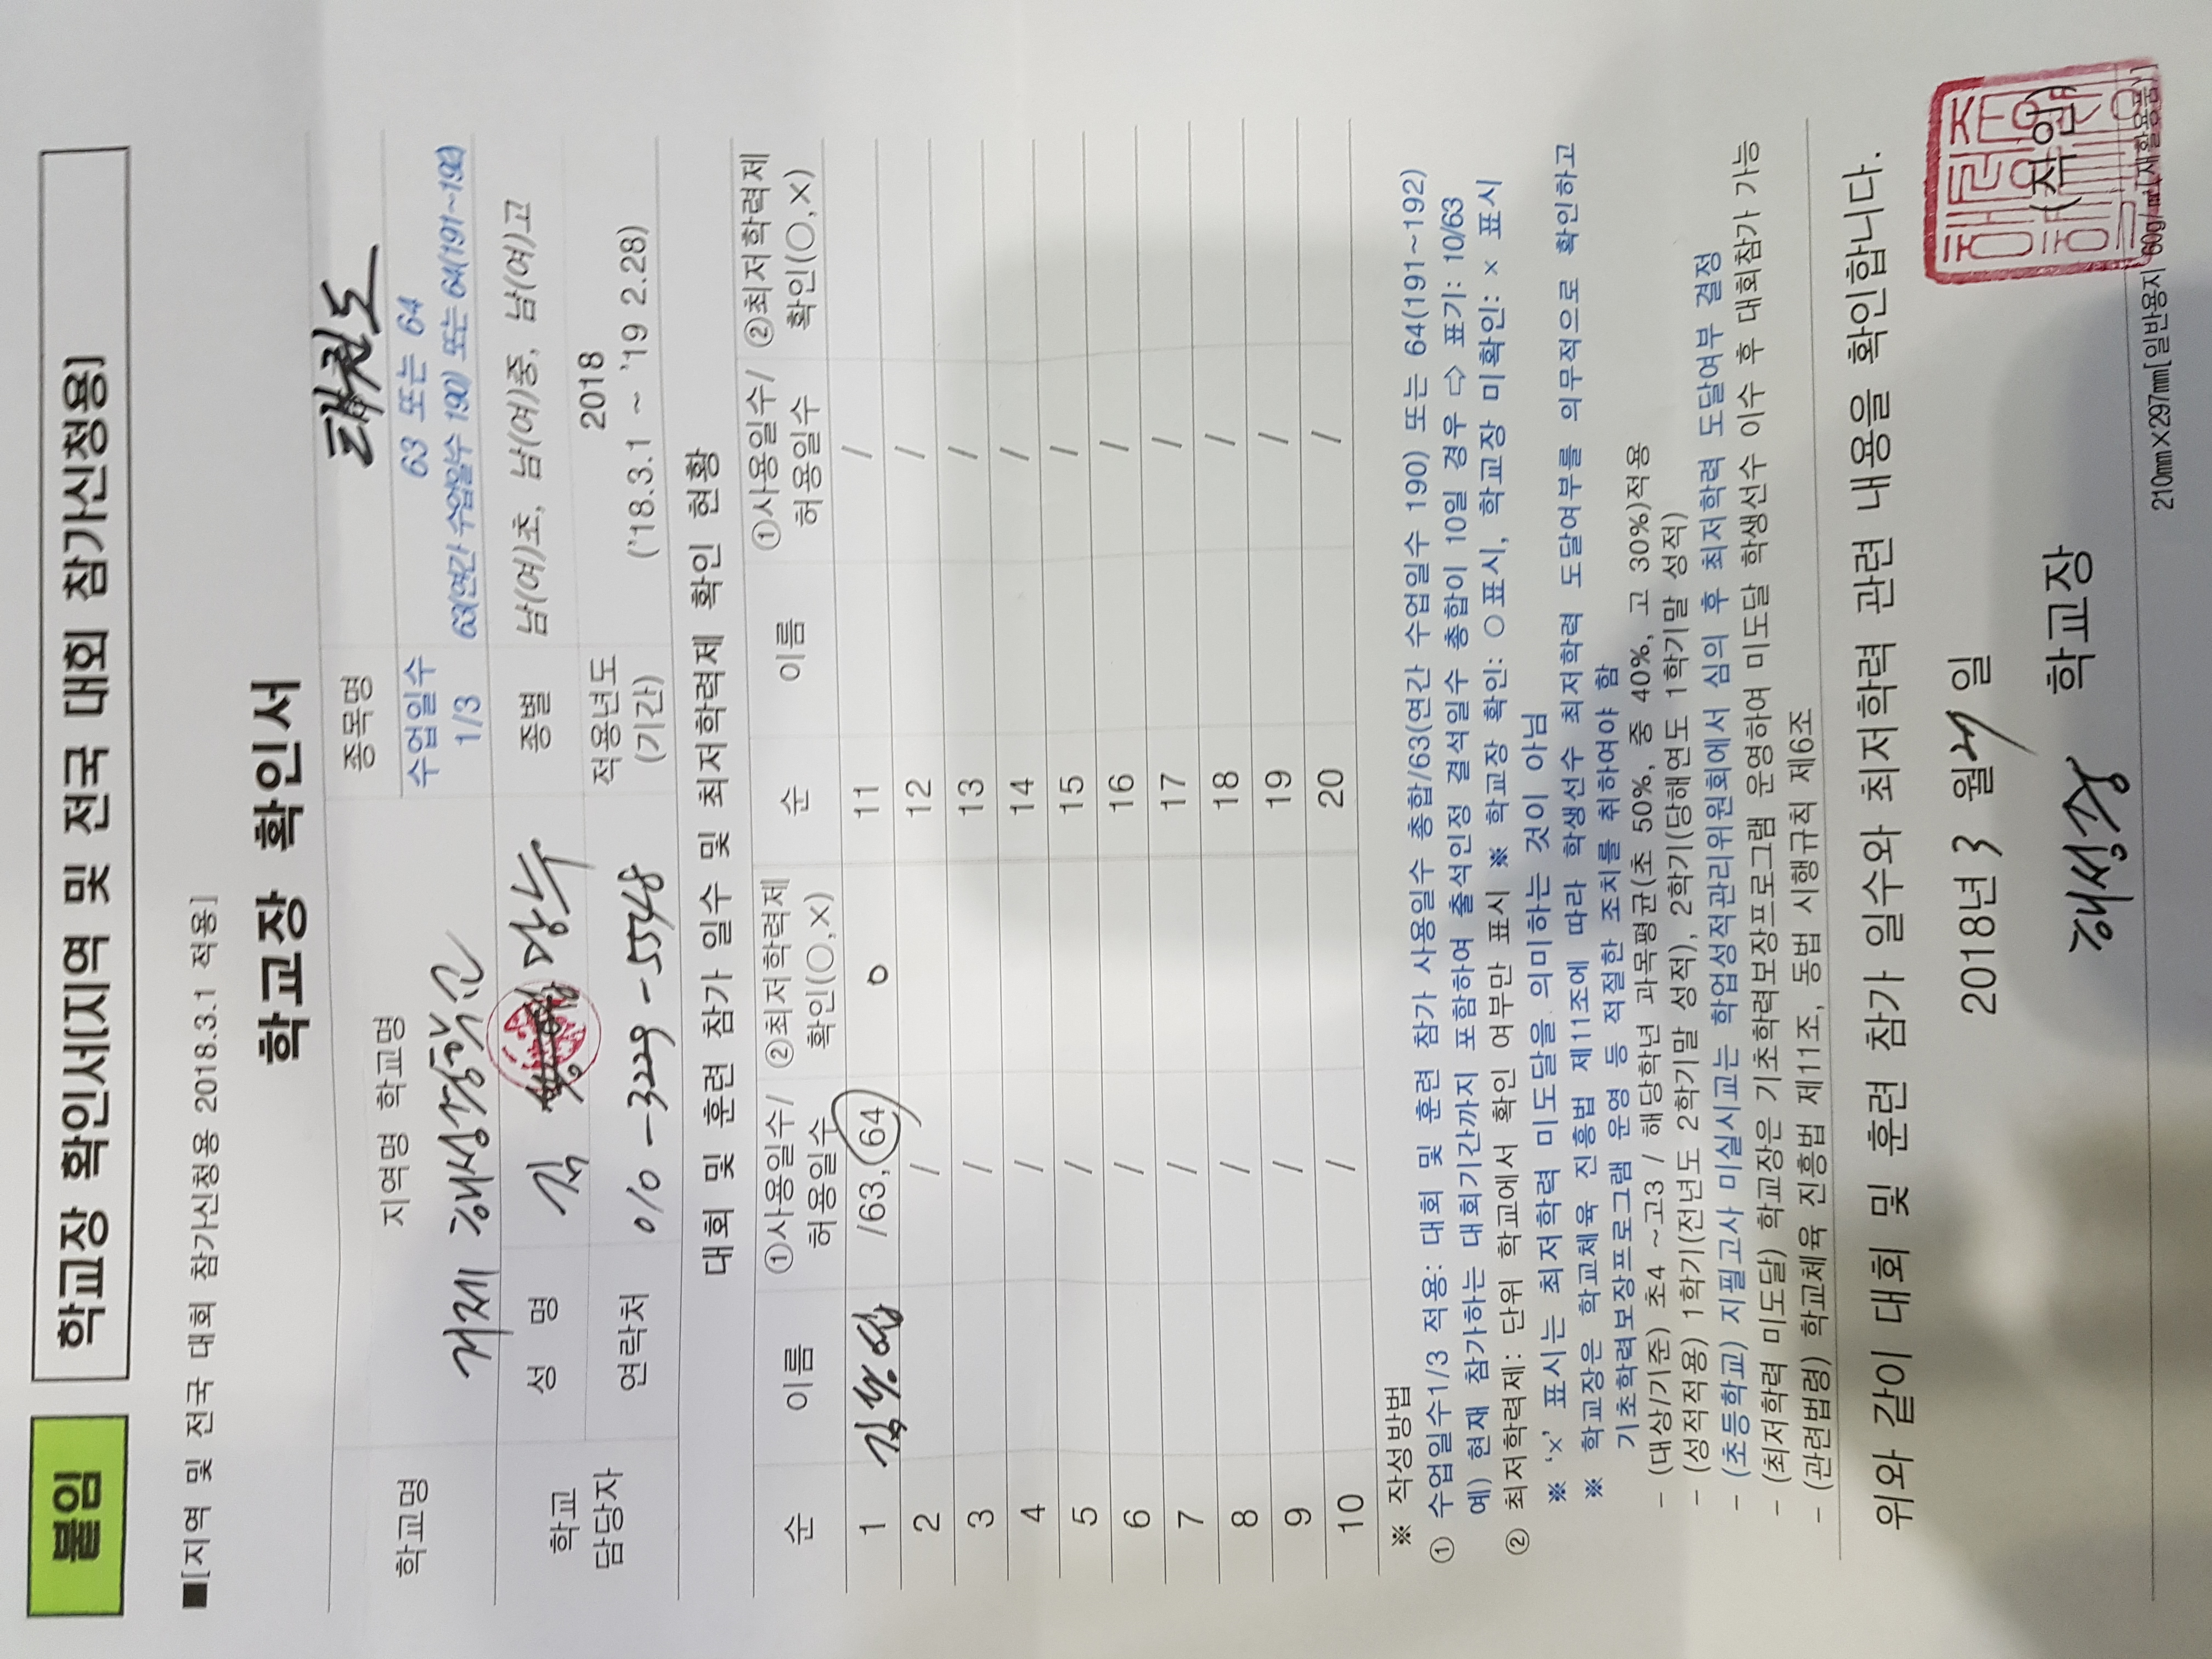 붙임
학교장 확인서(지역 및 전국 대회 참가신청용)
■[지역 및 전국 대회 참가신청용 2018.3.1 적용]
학교장 확인서
학교명
지역명 학교명
거제 해성
종목명
태권도
수업일수
1/3
63 또는 64
63(연간 수업일수 190) 또는 64(191~192)
학교
담당자
성 명
김
종별
남(여)초, 남(여)중, 남(여)고
연락처
010-3229-5548
적용년도
(기간)
2018
('18.3.1 ~ '19 2.28)
대회 및 훈련 참가 일수 및 최저학력제 확인 현황
순 이름 ①사용일수/허용일수 ②최저학력제 확인(○,×) 순 이름 ①사용일수/허용일수 ②최저학력제 확인(○,×)
1 김 /63, 64 ○ 11 /
2 / 12 /
3 / 13 /
4 / 14 /
5 / 15 /
6 / 16 /
7 / 17 /
8 / 18 /
9 / 19 /
10 / 20 /
※ 작성방법
① 수업일수1/3 적용: 대회 및 훈련 참가 사용일수 총합/63(연간 수업일수 190) 또는 64(191~192)
예) 현재 참가하는 대회기간까지 포함하여 출석인정 결석일수 총합이 10일 경우 ⇨ 표기: 10/63
② 최저학력제: 단위 학교에서 확인 여부만 표시 ※ 학교장 확인: ○표시, 학교장 미확인: × 표시
※ '×' 표시는 최저학력 미도달을 의미하는 것이 아님
※ 학교장은 학교체육 진흥법 제11조에 따라 학생선수 최저학력 도달여부를 의무적으로 확인하고
기초학력보장프로그램 운영 등 적절한 조치를 취하여야 함
- (대상/기준) 초4 ~고3 / 해당학년 과목평균(초 50%, 중 40%, 고 30%)적용
- (성적적용) 1학기(전년도 2학기말 성적), 2학기(당해연도 1학기말 성적)
- (초등학교) 지필고사 미실시교는 학업성적관리위원회에서 심의 후 최저학력 도달여부 결정
- (최저학력 미도달) 학교장은 기초학력보장프로그램 운영하여 미도달 학생선수 이수 후 대회참가 가능
- (관련법령) 학교체육 진흥법 제11조, 동법 시행규칙 제6조
위와 같이 대회 및 훈련 참가 일수와 최저학력 관련 내용을 확인합니다.
2018년 3 월 일
해성중 학교장 (직인)
210㎜×297㎜[일반용지 60g/㎡(재활용품)]